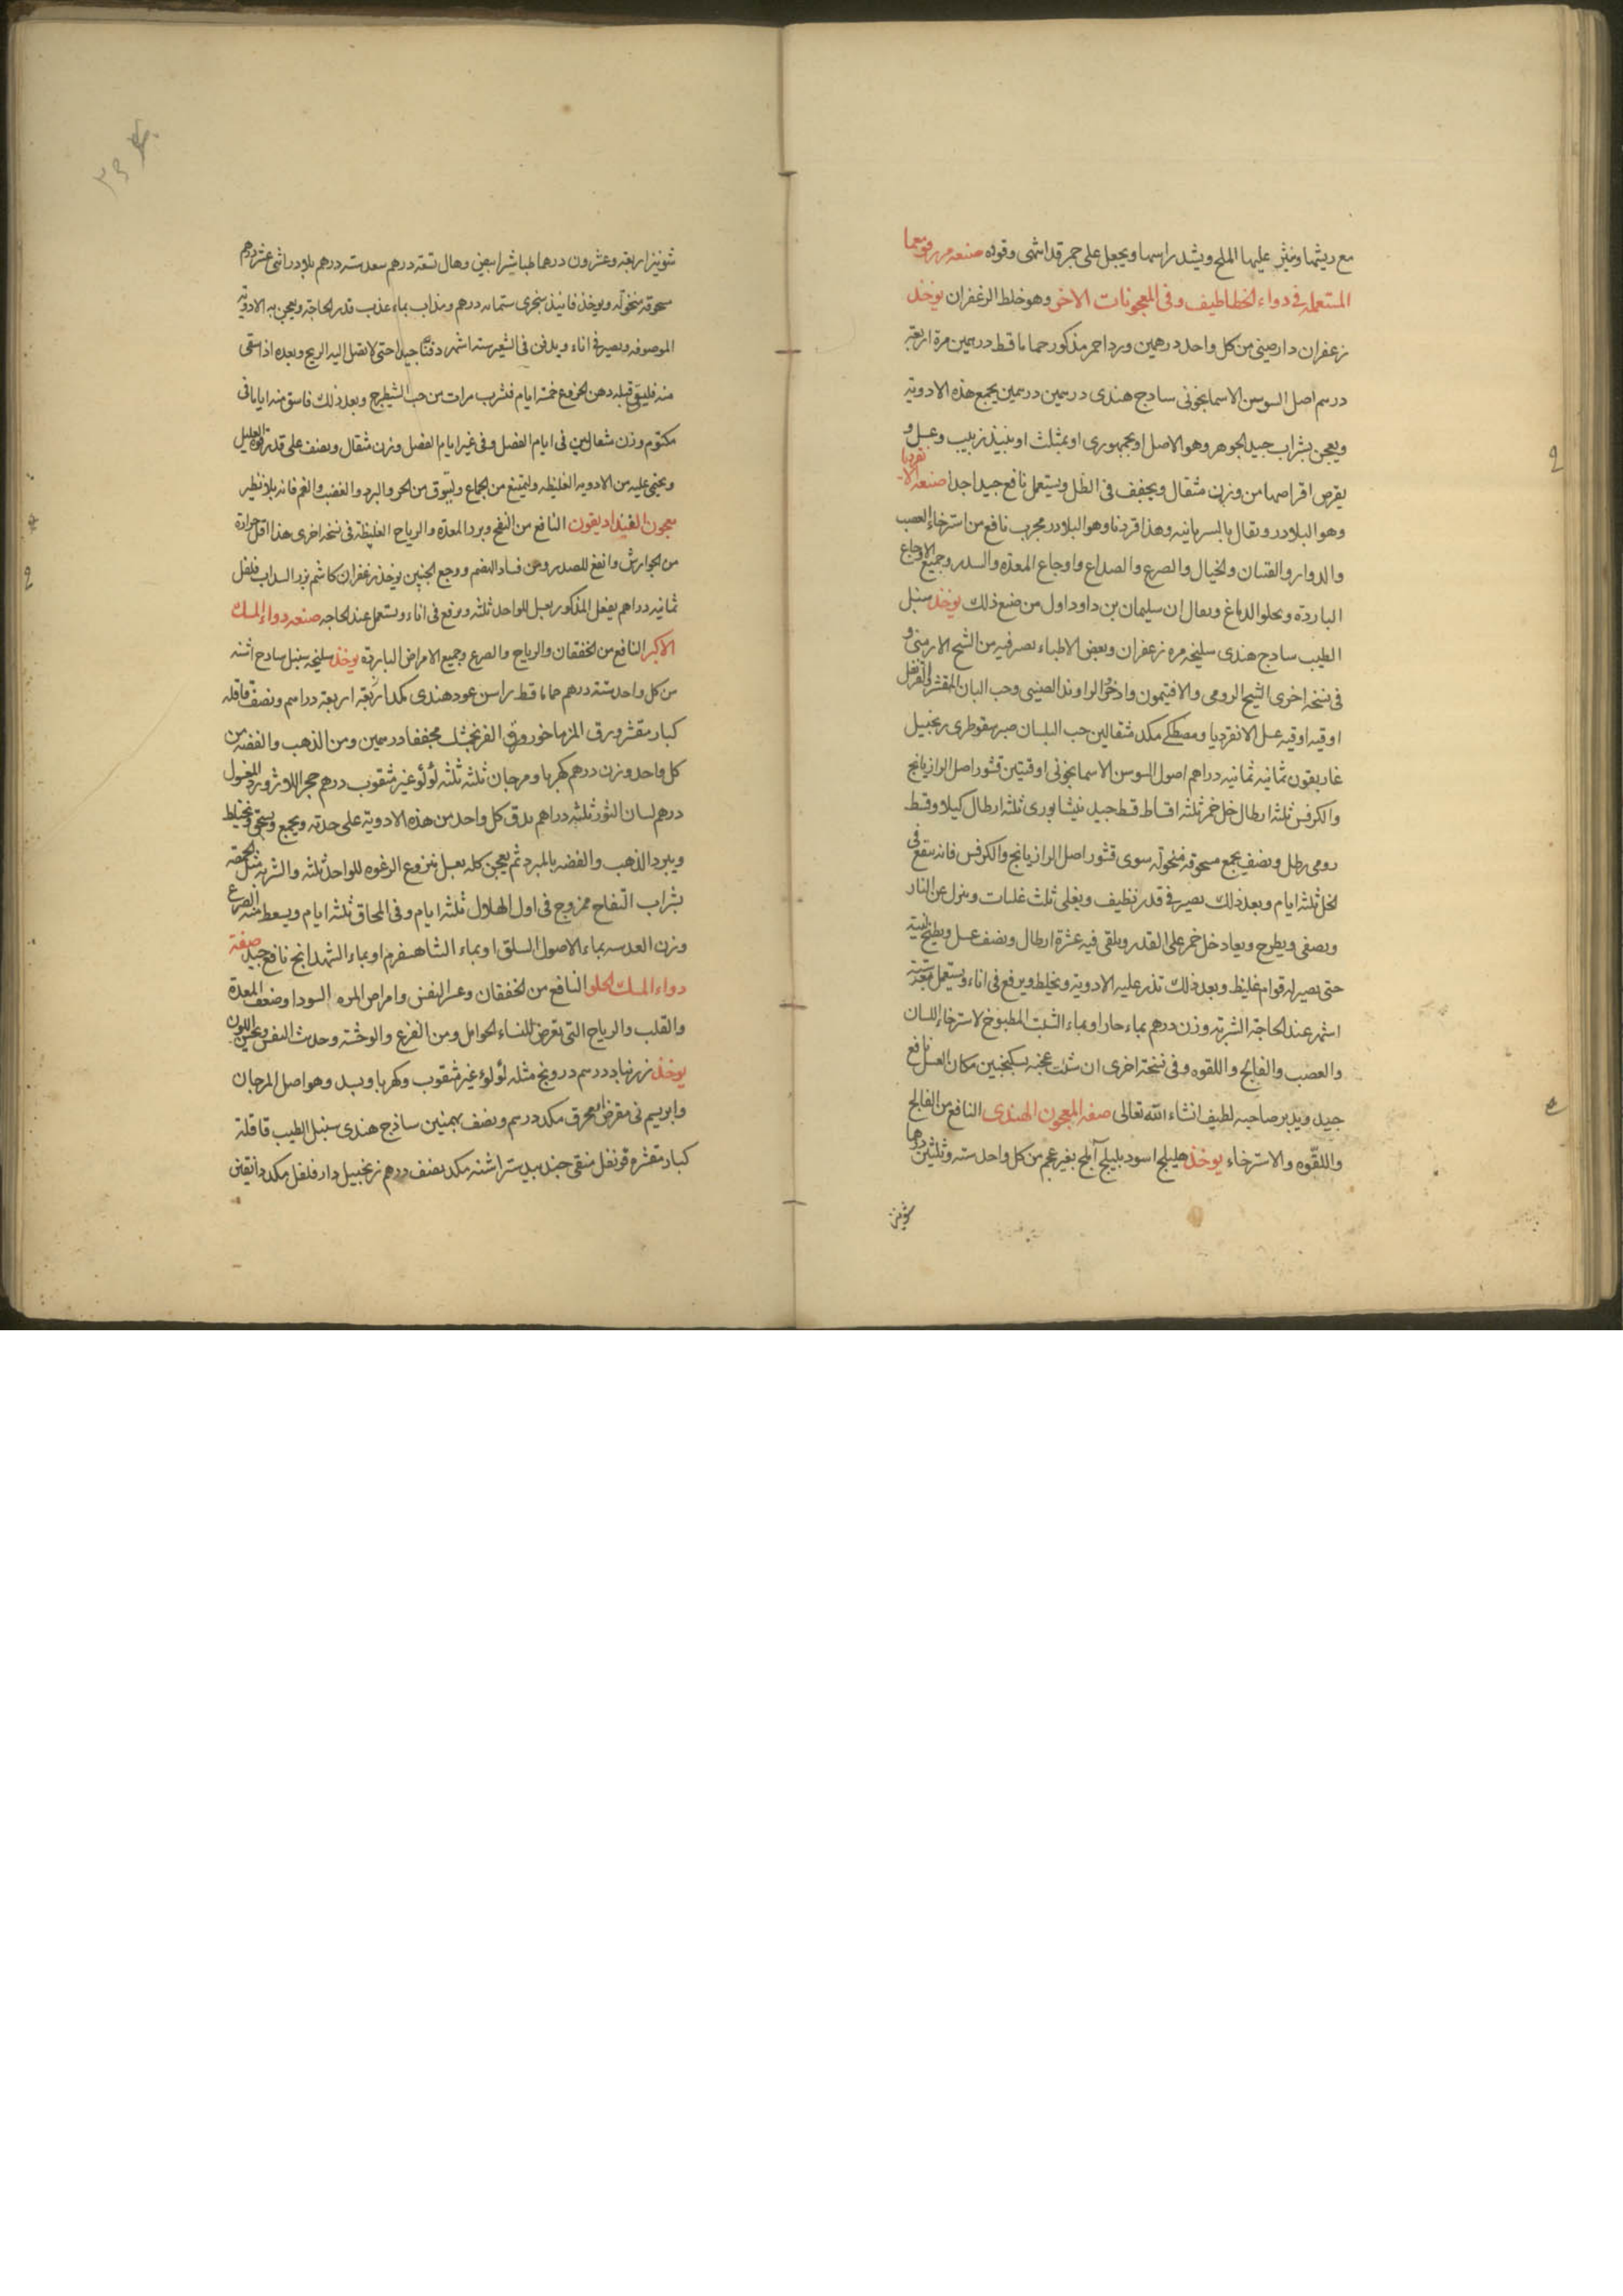 مع ريشها وينثر عليها الملح ويشد راسها ويجعل على جمر قد اشهى وقوده صنعه
المستعمله فى دواء الخطاطيف وفى المعجونات الاخر وهو خلط الزعفران يوخذ
زعفران دارصينى من كل واحد درهمين ورد احمر مذكور حماما قسط درهمين مرة اربعة
درهم اصل السوسن الاسمانجونى سادج هندى درهمين درهمين يجمع هذه الادوية
ويعجن بشراب جيد الجوهر وهو الاصل او بجمهورى او بمثلث او بنبيذ زبيب وعسل و
يقرص اقراصها من وزن مثقال ويجفف فى الظل ويستعمل نافع جيدا جدا صنعه الا
نقرديا
وهو البلادر ويقال بالسريانيه وهذا قردنا وهو البلادر مجرب نافع من استرخاء العصب
والدوار والنسيان والخيال والصرع والصداع واوجاع المعدة والسدر وجميع الاوجاع
الباردة ويجلو الدماغ ويقال ان سليمان بن داود اول من صنع ذلك يوخذ سنبل
الطيب سادج هندى سليخه مره زعفران وبعض الاطباء يصرفيه من الشيح الارمنى و
فى نسخه اخرى الشيح الرومى والافتيمون واذخر الراوند الصينى وحب البان المقشر القرنفل
اوقيه اوقيه عسل الانقرديا ومصطكى مكد مثقالين حب البلسان صبر سقوطرى زنجبيل
غاريقون ثمانيه ثمانيه دراهم اصول السوسن الاسمانجونى اوقيتين قشور اصل الرازيانج
والكرفس ثلثه ارطال خل خمر ثلثه اقساط قسط جيد نيشابورى ثلثه ارطال كيلا وقسط
رومى رطل ونصف يجمع مسحوقه منخوله سوى قشور اصل الرازيانج والكرفس فانه ينقع فى
الخل ثلثه ايام وبعد ذلك يصير فى قدر نظيف ويغلى ثلث غليات وينزل عن النار
ويصفى ويطرح ويعاد خل خمر على القدر ويلقى فيه عشرة ارطال ونصف عسل ويطبخ
حتى يصير له قوام غليظ وبعد ذلك تذر عليه الادوية ويخلط ويرفع فى اناء ويستعمل بعد ستة
اشهر عند الحاجة الشربه وزن درهم بماء حار او بماء الشبت المطبوخ لاسترخاء اللسان
والعصب والفالج واللقوه وفى نسخة اخرى ان شئت عجنه بسكنجبين مكان العسل نافع
جيد ويدبر صاحبه لطيف انشاء الله تعالى صفه المعجون الهندى النافع من الفالج
واللقّوه والاسترخاء يوخذ هليلج اسود بليلج آملج بغير عجم من كل واحد سته وثلثين درهما
شونيز
شونيز اربعة وعشرون درهما طباشير ابيض وهال تسعة درهم سعد سته درهم بلادر اثنى عشر درهم
مسحوقه منخولة ويوخذ فانيذ سنجرى ستمائه درهم ويذاب بماء عذب قدر الحاجة ويعجن به الادوية
الموصوفه ويصير فى اناء ويدفن فى الشعير سته اشهر دفنًا جيدا حتى لا تصل اليه الريح وبعده اذا سقى
منه فليسق قبله دهن الخروع خمسة ايام فشرب مرات من حب الشيطرج وبعد ذلك فاسق منه اياما فى
مكتوم وزن مثقالين فى ايام الفصل وفى غير ايام الفصل وزن مثقال ونصف على قدر قوة العليل
ويحتمى عليه من الادويه الغليظه وليمتنع من الجماع وليتوق من الحر والبرد والغضب والغم فانه بلا نظير
معجون الفنداديقون النافع من النفخ وبرد المعدة والرياح الغليظة فى نسخه اخرى هذا اقل حرارة
من الجوارش وانفع للصدر ومن فساد الهضم ووجع الجنبين يوخذ زعفران كاشم بزر السداب فلفل
ثمانيه دراهم يفعل المذكور بعسل للواحد ثلثه ويرفع فى اناء ويستعمل عند الحاجه صنعه دواء المسك
الاكبر النافع من الخفقان والرياح والصرع وجميع الامراض الباردة يوخذ سليخه سنبل سادج اشنه
من كل واحد ستة درهم حماما قسط راسن عود هندى مكد اربعة اربعة دراهم ونصف قاقله
كبار مقشر ورق المزماخور ورق الفرنجمشك مجففا درهمين ومن الذهب والفضه من
كل واحد وزن درهم كهربا ومرجان ثلثه ثلثه لؤلؤ غير مثقوب درهم حجر اللازورد المغسول
درهم لسان الثور ثلثه دراهم يدق كل واحد من هذه الادوية على حدته ويجمع ويسحق ويختلط
ويبرد الذهب والفضه بالمبرد ثم يعجن كله بعسل منزوع الرغوه للواحد ثلثه والشربه مثل الحمصه
بشراب التفاح ممزوج فى اول الهلال ثلثه ايام وفى المحاق ثلثه ايام ويسعط منه الصرع
وزن العدسه بماء الاصول السلق او بماء الشاهسفرم او بماء الشهدانج نافع جيد صفة
دواء المسك الحلو النافع من الخفقان وعسر النفس وامراض المره السودا وضعف المعدة
والقلب والرياح التى تعرض للنساء الحوامل ومن الفزع والوحشة وحديث النفس ويحسن اللون
يوخذ زرنباد درهم درونج مثله لؤلؤ غير مثقوب وكهربا وبسد وهو اصل المرجان
وابريسم نى مقرض محرق مكد درهم ونصف بهمنين ساذج هندى سنبل الطيب قاقلة
كبار مقشره قرنفل منقى جندبيدستر اشنه مكد نصف درهم زنجبيل دار فلفل مكد دانقين